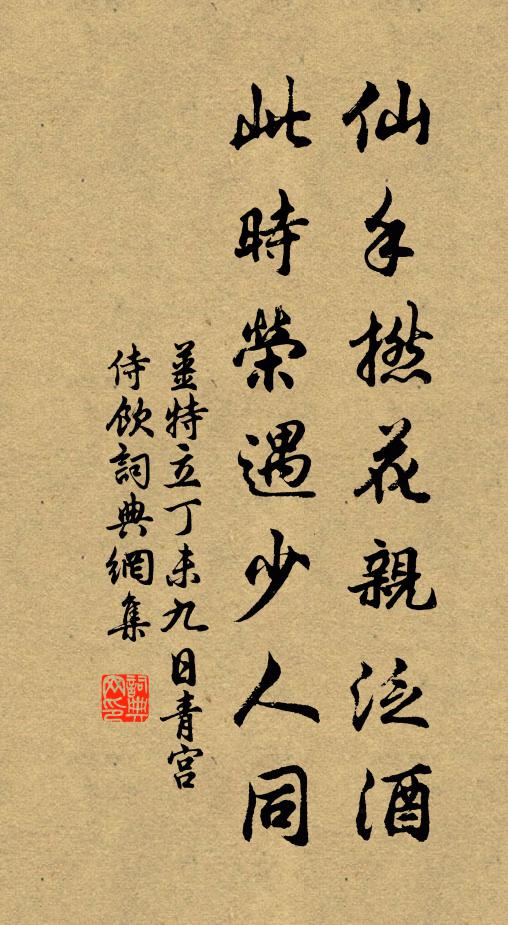 仙手撚花親泛酒
此時榮遇少人同
薑特立丁未九日青宮
侍飲詞典網集
詞典網印